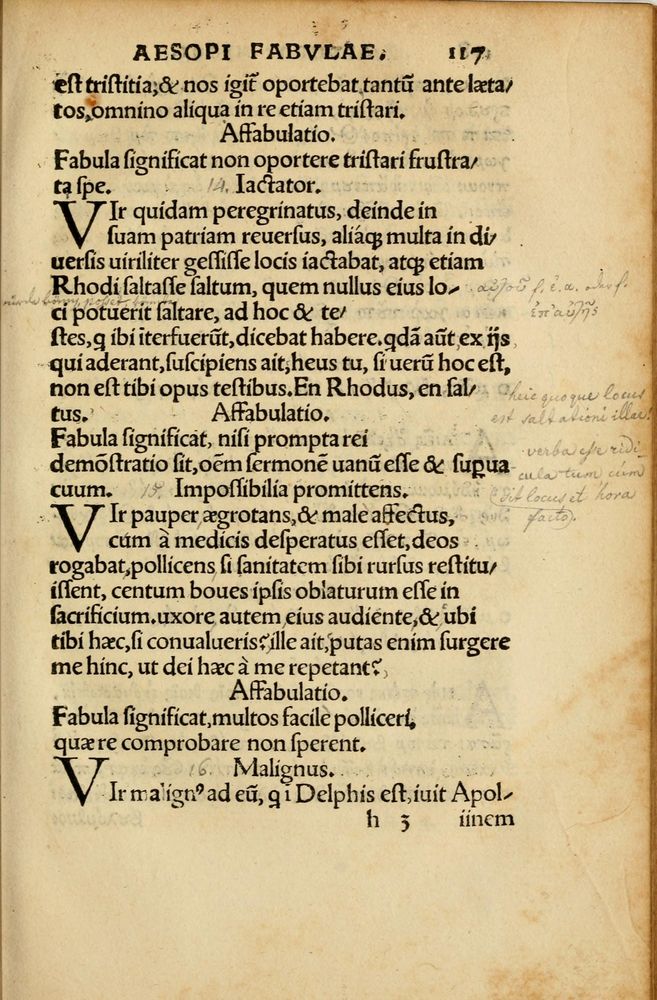 AESOPI FABVLAE. 117
est tristitia;& nos igit̃ oportebat,tantũ ante læta/
tos,omnino aliqua in re etiam tristari.
Affabulatio.
Fabula significat non oportere tristari frustra/
ta spe. 14. Iactator.
VIr quidam peregrinatus, deinde in
suam patriam reuersus, aliáqꝫ multa in di/
uersis uiriliter gessisse locis iactabat, atqꝫ etiam
Rhodi saltasse saltum, quem nullus eius lo/
ci potuerit saltare, ad hoc & te/
stes,q̃ ibi ĩterfuerũt,dicebat habere.qdã aũt ex ijs
qui aderant,suscipiens ait;heus tu, si uerũ hoc est,
non est tibi opus testibus.En Rhodus, en sal/
tus. Affabulatio.
Fabula significat, nisi prompta rei
demõstratio sit,oẽm sermonẽ uanũ esse & supua
cuum. 15. Impossibilia promittens.
VIr pauper ægrotans,& male affectus,
cum à medicis desperatus esset,deos
rogabat,pollicens si sanitatem sibi rursus restitu/
issent, centum boues ipsis oblaturum esse in
sacrificium.uxore autem eius audiente,& ubi
tibi hæc,si conualueris? ille ait,putas enim surgere
me hinc, ut dei hæc à me repetant?
Affabulatio.
Fabula significat,multos facile polliceri,
quæ re comprobare non sperent.
16. Malignus.
VIr malignꝰ ad eũ, q̃ i Delphis est,iuit Apol/
h 3 iinem
heic quoque locus
est saltationi illae!
verba esse ridi
cula tum cum
sit locus et hora
facto).